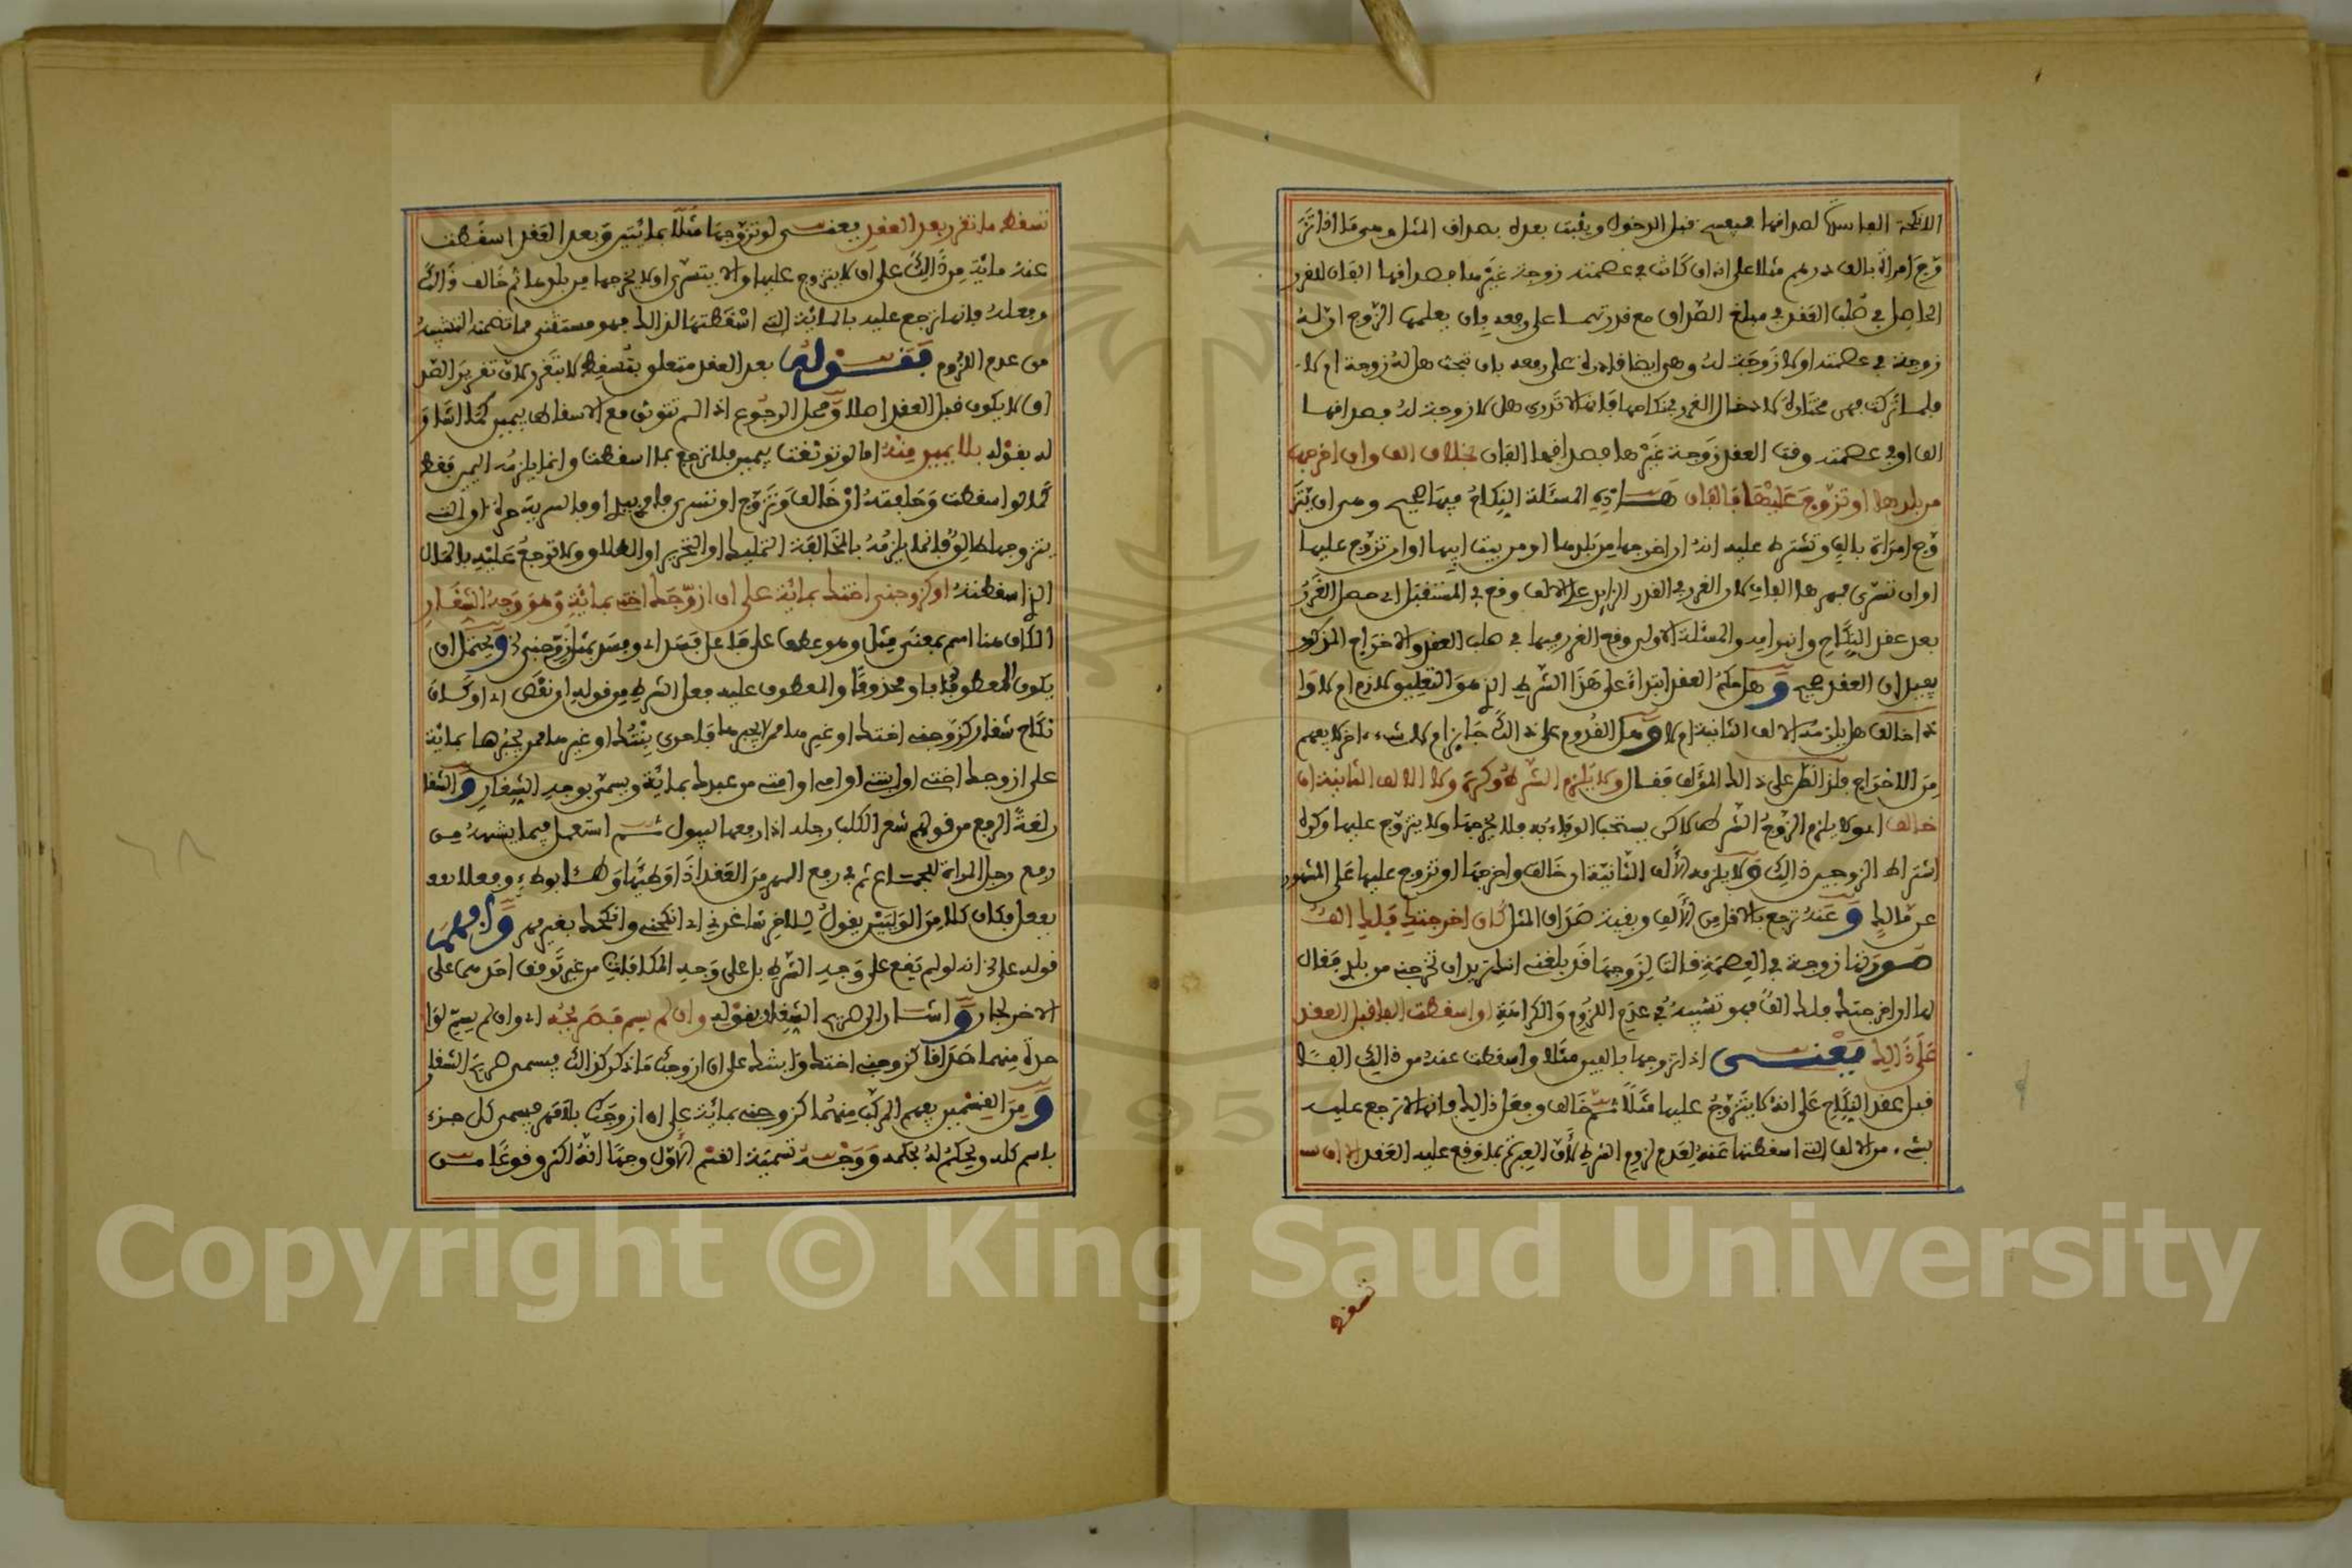 الانكحة الفاسدة لصداقها فيفسخ قبل الدخول ويثبت بعده بصداق المثل وهي ما اذا تز
وج امراة بالف درهم مثلا على انه ان كانت في عصمته زوجة غيرها فصداقها الفان للغرر
الحاصل في صلب العقد في مبلغ الصداق مع قدرتهما على رفعه بان يعلمها الزوج ان له
زوجة في عصمته او لا زوجة له وهي ايضا قادرة على رفعه بان تبحث هل له زوجة ام لا
فلما تركت فهي مختارة لادخال الغرر في نكاحها فانها لا تدري هل لا زوجة له فصداقها
الف او في عصمته وقت العقد زوجة غيرها فصداقها الفان بخلاف الف وان اخرجها
من بلدها او تزوج عليها فالفان هذه المسئلة النكاح فيها صحيح وهي ان يتز
وج امراة بالف وتشترط عليه انه ان اخرجها من بلدها او من بيت ابيها او ان تزوج عليها
او ان تسرى فمهرها الفان لان الغرر في القدر الزايد على الالف وقع في المستقبل اي حصل الغرر
بعد عقد النكاح وانبرامه والمسئلة الاولى وقع الغرر فيها في صلب العقد والاخراج المذكور
فقيل ان العقد صحيح وهل حكم العقد ابتداء على هذا الشرط الذي هو التعليق لازم ام لا وا
ذا خالف هل يلزمه الالف الثانية ام لا وهل القدوم على ذالك جايز ام لا لشيء اخر لا يفهم
من الاخراج فلذا نظر على ذالك المؤلف فقال ولا يلزم الشرط وكره ولا الالف الثانية ان
خالف اي ولا يلزم الزوج الشرط لاكن يستحب الوفاء به فلا يخرجها ولا يتزوج عليها وكره
اشتراط الزوجين ذالك ولا يلزمه الالف الثانية ان خالف واخرجها او تزوج عليها على المشهور
عن مالك وعنه ترجع بالاقل من الالف وبقية صداق المثل كان اخرجتك فلك الف
صورتها زوجة في العصمة قالت لزوجها قد بلغني انك تريد ان تخرجني من بلدي فقال
لها ان اخرجتك فلك الف فهو تشبيه في عدم اللزوم والكراهة او اسقطت الفا قبل العقد
على ذالك يعني اذا تزوجها بالفين مثلا واسقطت عنه من ذالك الفا
قبل عقد النكاح على انه لا يتزوج عليها مثلا ثم خالف وفعل ذالك فانها لا ترجع عليه
بشيء من الالف التي اسقطتها عنه لعدم لزوم الشرط لان العبرة بما وقع عليه العقد الا ان
تسقط
تسقط ما تقرر بعد العقد يعني لو تزوجها مثلا بمائتين وبعد العقد اسقطت
عنه مائة من ذالك على ان لا يتزوج عليها ولا يتسرى او لا يخرجها من بلدها ثم خالف ذالك
وفعله فانها ترجع عليه بالمائة التي اسقطتها لذالك فهو مستثنى مما تضمنه التشبيه
من عدم اللزوم فقوله بعد العقد متعلق بتسقط لا بتقرر لان تقرير الصد
اق لا يكون قبل العقد اصلا ومحل الرجوع اذا لم تتوثق مع الاسقاط بيمين كما اشار
له بقوله بلا يمين منه اما لو توثقت بيمين فلا ترجع بما اسقطت وانما يلزمه اليمين فقط
كما لو اسقطت وحلفته ان خالف وتزوج او تسرى فامرها بيدها او فالسرية حرة او التي
يتزوجها طالق فانما يلزمه بالمخالفة التمليك او التحرير او الطلاق ولا ترجع عليه بالمال
الذي اسقطته او كزوجني اختك بمائة على ان ازوجك اختي بمائة وهو وجه الشغار
الكاف هنا اسم بمعنى مثل وهو عطف على فاعل فسد اي وفسد مثل زوجني ويحتمل ان
يكون المعطوف بأو محذوفا والمعطوف عليه فعل الشرط من قوله ان نقص اي او كان
نكاح شغار كزوجني اختك او غيرها ممن لا يجبرها فاحرى بنتك او غيرها ممن يجبرها بمائة
على ان ازوجك اختي او ابنتي او امي او امتي من عبدك بمائة ويسمى بوجه الشغار والشغا
ر لغة الرفع من قولهم شغر الكلب رجله اذا رفعها ليبول ثم استعمل فيما يشبهه من
رفع رجل المراة للجماع ثم في رفع المهر من العقد اذا وطئها وهذا بوطء وفعلا بفعل
بفعل وكان كلا من الوليين يقول للاخر شاغرني اي انكحني وانكحك بغير مهر وافهم
قوله على ان انه لو لم يقع على وجه الشرط بل على وجه المكافاة من غير توقف احدهما على
الاخر لجاز واشار الى صريح الشغار بقوله وان لم يسم فصريحه اي وان لم يسم لوا
حدة منهما صداقا كزوجني اختك وابنتك على ان ازوجك ما ذكر كذالك فيسمى صريح الشغار
ومن القسمين يفهم المركب منهما كزوجني بمائة على ان ازوجك بلا مهر فيسمى كل جزء
باسم كله ويحكم له بحكمه ووجه تسمية القسم الاول وجها انه اكثر وقوعا من
Copyright © King Saud University
1957